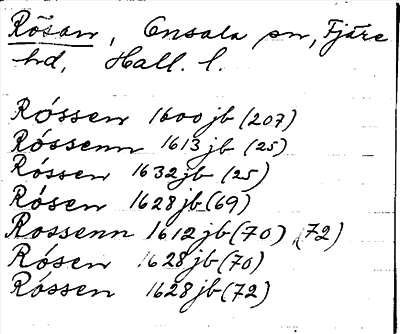 Rösan, Onsala sn, Fjäre
hd, Hall. l.
Róssen 1600 jb (207)
Róssenn 1613 jb (25)
Róssen 1632 jb (25)
Rósen 1628 jb (69)
Rossenn 1612 jb (70), (72)
Rósen 1628 jb (70)
Róssen 1628 jb (72)